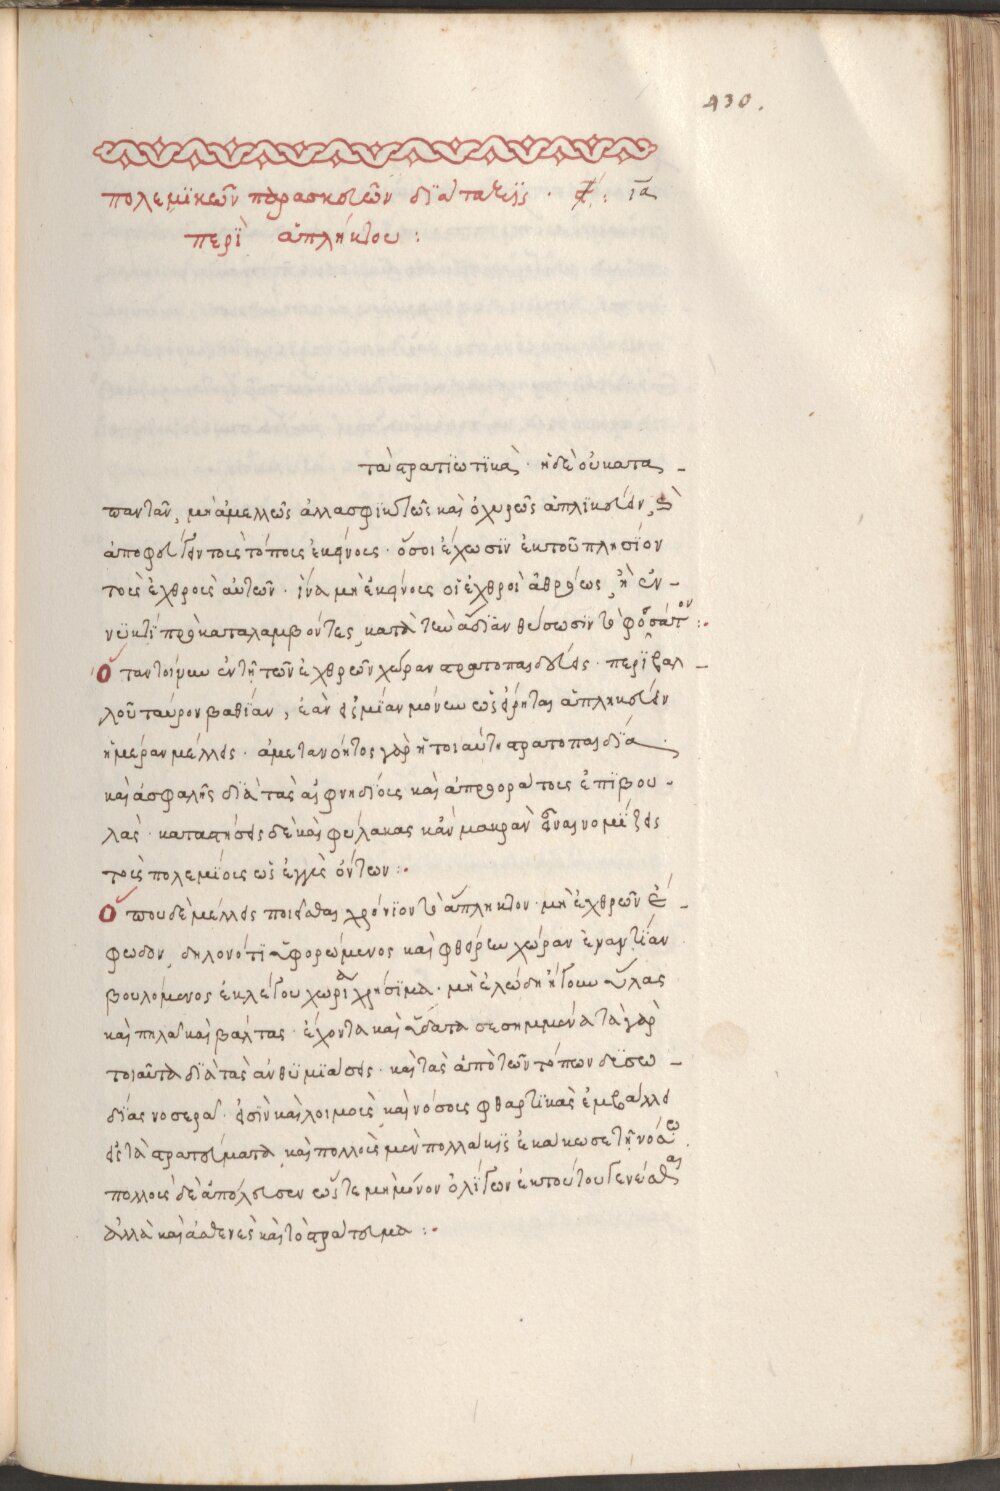 430.
πολεμϊκῶν παρασκευῶν διάταξϊς · ια
περϊ ἀπλήκτου :
τὰ στρατϊωτϊκὰ · ἡ δὲ οὐ κατα
παντᾶν, μὴ ἀμελλῶς ἀλλασφϊκτῶς καὶ ὀχυρῶς ἀπλϊκεύειν,
ἀποφεύγειν τοὺς τόπους ἐκείνους · ὅσοι ἔχωσϊν ἐκ τοῦ πλησίον
τοὺς ἐχθροὺς αὐτῶν · ἵνα μὴ ἐκείνοις οἱ ἐχθροὶ ἀθρόως, ἢ ἐν
νϋκτὶ προκαταλαμβόντες, κατὰ τὴν ἀδϊαν θύσωσϊν τὸ φοσάτον :
Ὅταν τοίνυν ἐν τῇ τῶν ἐχθρῶν χώραν στρατοπαιδεύεις · περϊβαλ
λοῦ ταύρον βαθϊάν, ἐὰν εἰς μίαν μόνην ὡς εἴρηται ἀπληκεύειν
ἡμέραν μέλλεις · ἀμετανόητος γὰρ ἡ τοιαύτη στρατοπαιδϊα
καὶ ἀσφαλὴς διὰ τὰς αἰφνηδίους καὶ ἀπροοράτους ἐπϊβου
λάς · καταστήσεις δὲ καὶ φύλακας κἂν μακρὰν εἶναι νομϊζεις
τοὺς πολεμίους ὡς ἐγγὺς ὄντων :
Ὅπου δὲ μέλλεις ποιεῖσθαι χρόνϊον τὸ ἄπληκτον · μὴ ἐχθρῶν ἐ
φωδον, δηλονότι ὑφορώμενος καὶ φθείρειν χώραν ἐναντίαν
βουλόμενος ἐκλέγου χωρία χρήσϊμα · μὴ ἑλώδη ἤγουν ὕλας
καὶ πηλὰ καὶ βάλτας · ἔχοντα καὶ ὕδατα σεσημμένα τὰ γὰρ
τοιαῦτα διὰ τὰς ἀνθϋμϊάσεις · καὶ τὰς ἀπὸ τῶν τόπων δϋσω
δίας νοσερά · εἰσὶν καὶ λοιμοὺς καὶ νόσους φθαρτϊκὰς ἐμβάλλει
εἰς τὰ στρατεύματα, καὶ πολλοὺς μὲν πολλάκϊς ἐκάκωσε τῇ νόσω
πολλοὺς δὲ ἀπόλευσεν ὥστε μὴ μόνον ὀλϊγων ἐκ τούτου γενέσθαι
ἀλλὰ καὶ ἀσθενὲς καὶ τὸ στράτευμα :